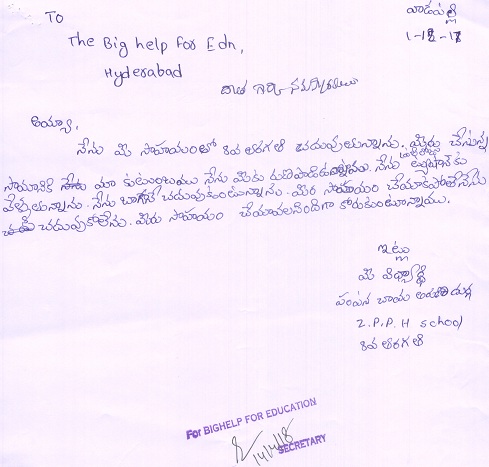 To
The Big help for Edn,
Hyderabad
వాడపల్లి
1-12-17
దాత గారికి నమస్కారములు
అయ్యా,
నేను మీ సహాయంతో 8వ తరగతి చదువుతున్నాను. మీరు చేస్తున్న
సాయానికి మా కుటుంబము నేను మీకు రుణపడి ఉంటాము. నేను ట్యూషన్‌కు
వెళ్ళుతున్నాను. నేను బాగానే చదువుకుంటున్నాను. మీరు సాయం చేయకపోతే నేను
చదువుకోలేను. మీరు సాహాయం చేయవలసిందిగా కోరుకుంటూన్నాము.
ఇట్లు
మీ విద్యార్థి
పంపన బాయి దుర్గ
Z.P.P.H school
8వ తరగతి
For BIGHELP FOR EDUCATION
14/4/18
SECRETARY